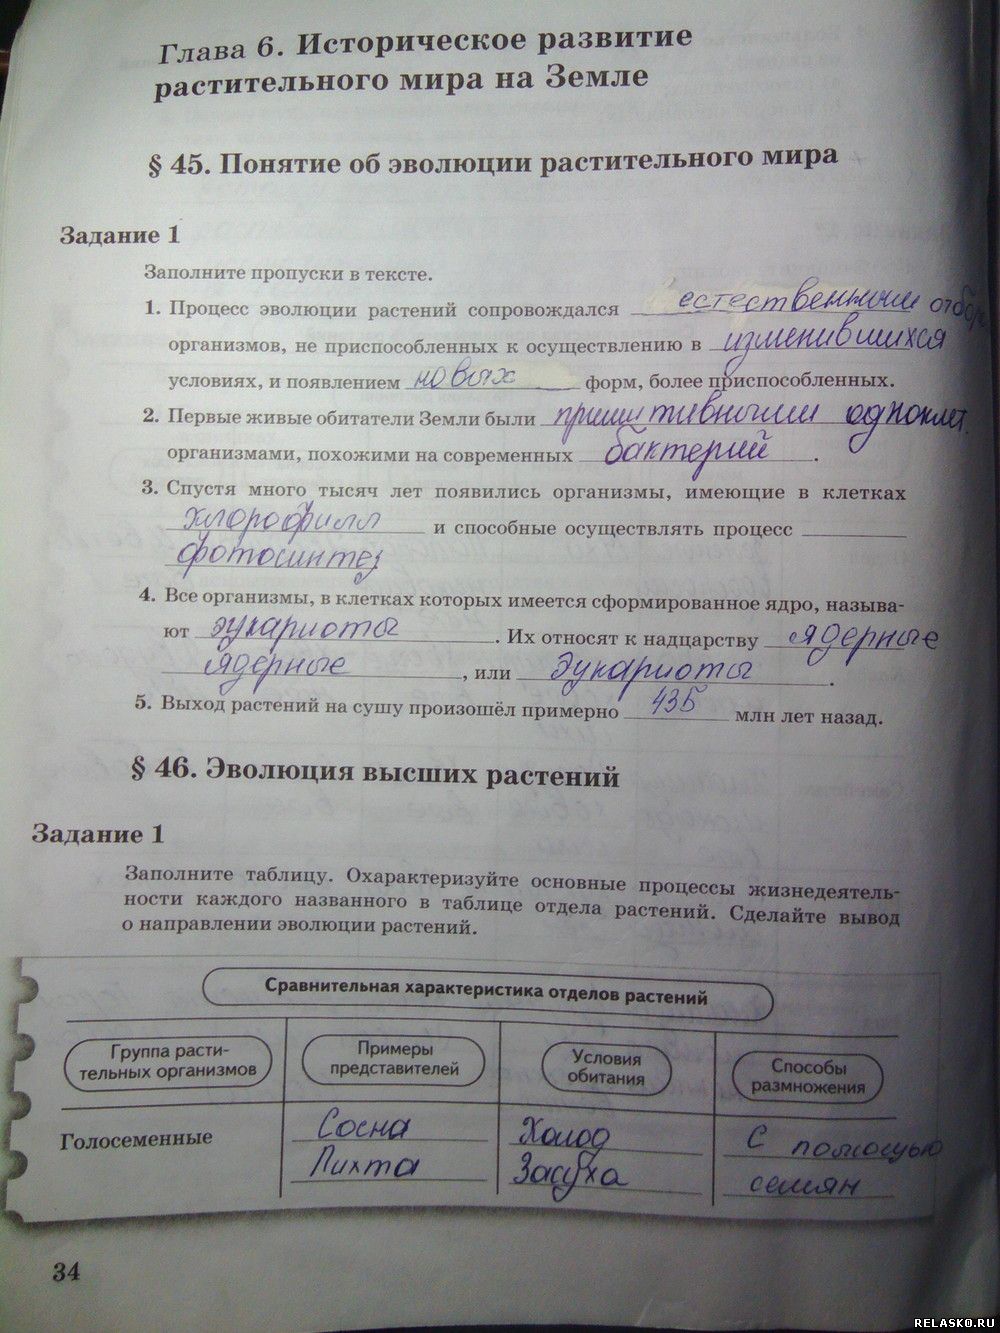 Глава 6. Историческое развитие
растительного мира на Земле
§ 45. Понятие об эволюции растительного мира
Задание 1
Заполните пропуски в тексте.
1. Процесс эволюции растений сопровождался естественным отбор
организмов, не приспособленных к осуществлению в изменившихся
условиях, и появлением новых форм, более приспособленных.
2. Первые живые обитатели Земли были примитивными одноклет.
организмами, похожими на современных бактерий.
3. Спустя много тысяч лет появились организмы, имеющие в клетках
хлорофилл и способные осуществлять процесс
фотосинтез
4. Все организмы, в клетках которых имеется сформированное ядро, называ-
ют эукариоты. Их относят к надцарству ядерные
ядерные, или Эукариоты.
5. Выход растений на сушу произошёл примерно 435 млн лет назад.
§ 46. Эволюция высших растений
Задание 1
Заполните таблицу. Охарактеризуйте основные процессы жизнедеятель-
ности каждого названного в таблице отдела растений. Сделайте вывод
о направлении эволюции растений.
Сравнительная характеристика отделов растений
Группа расти-
тельных организмов
Примеры
представителей
Условия
обитания
Способы
размножения
Голосеменные
Сосна
Пихта
Холод
Засуха
С помощью
семян
34
RELASKO.RU